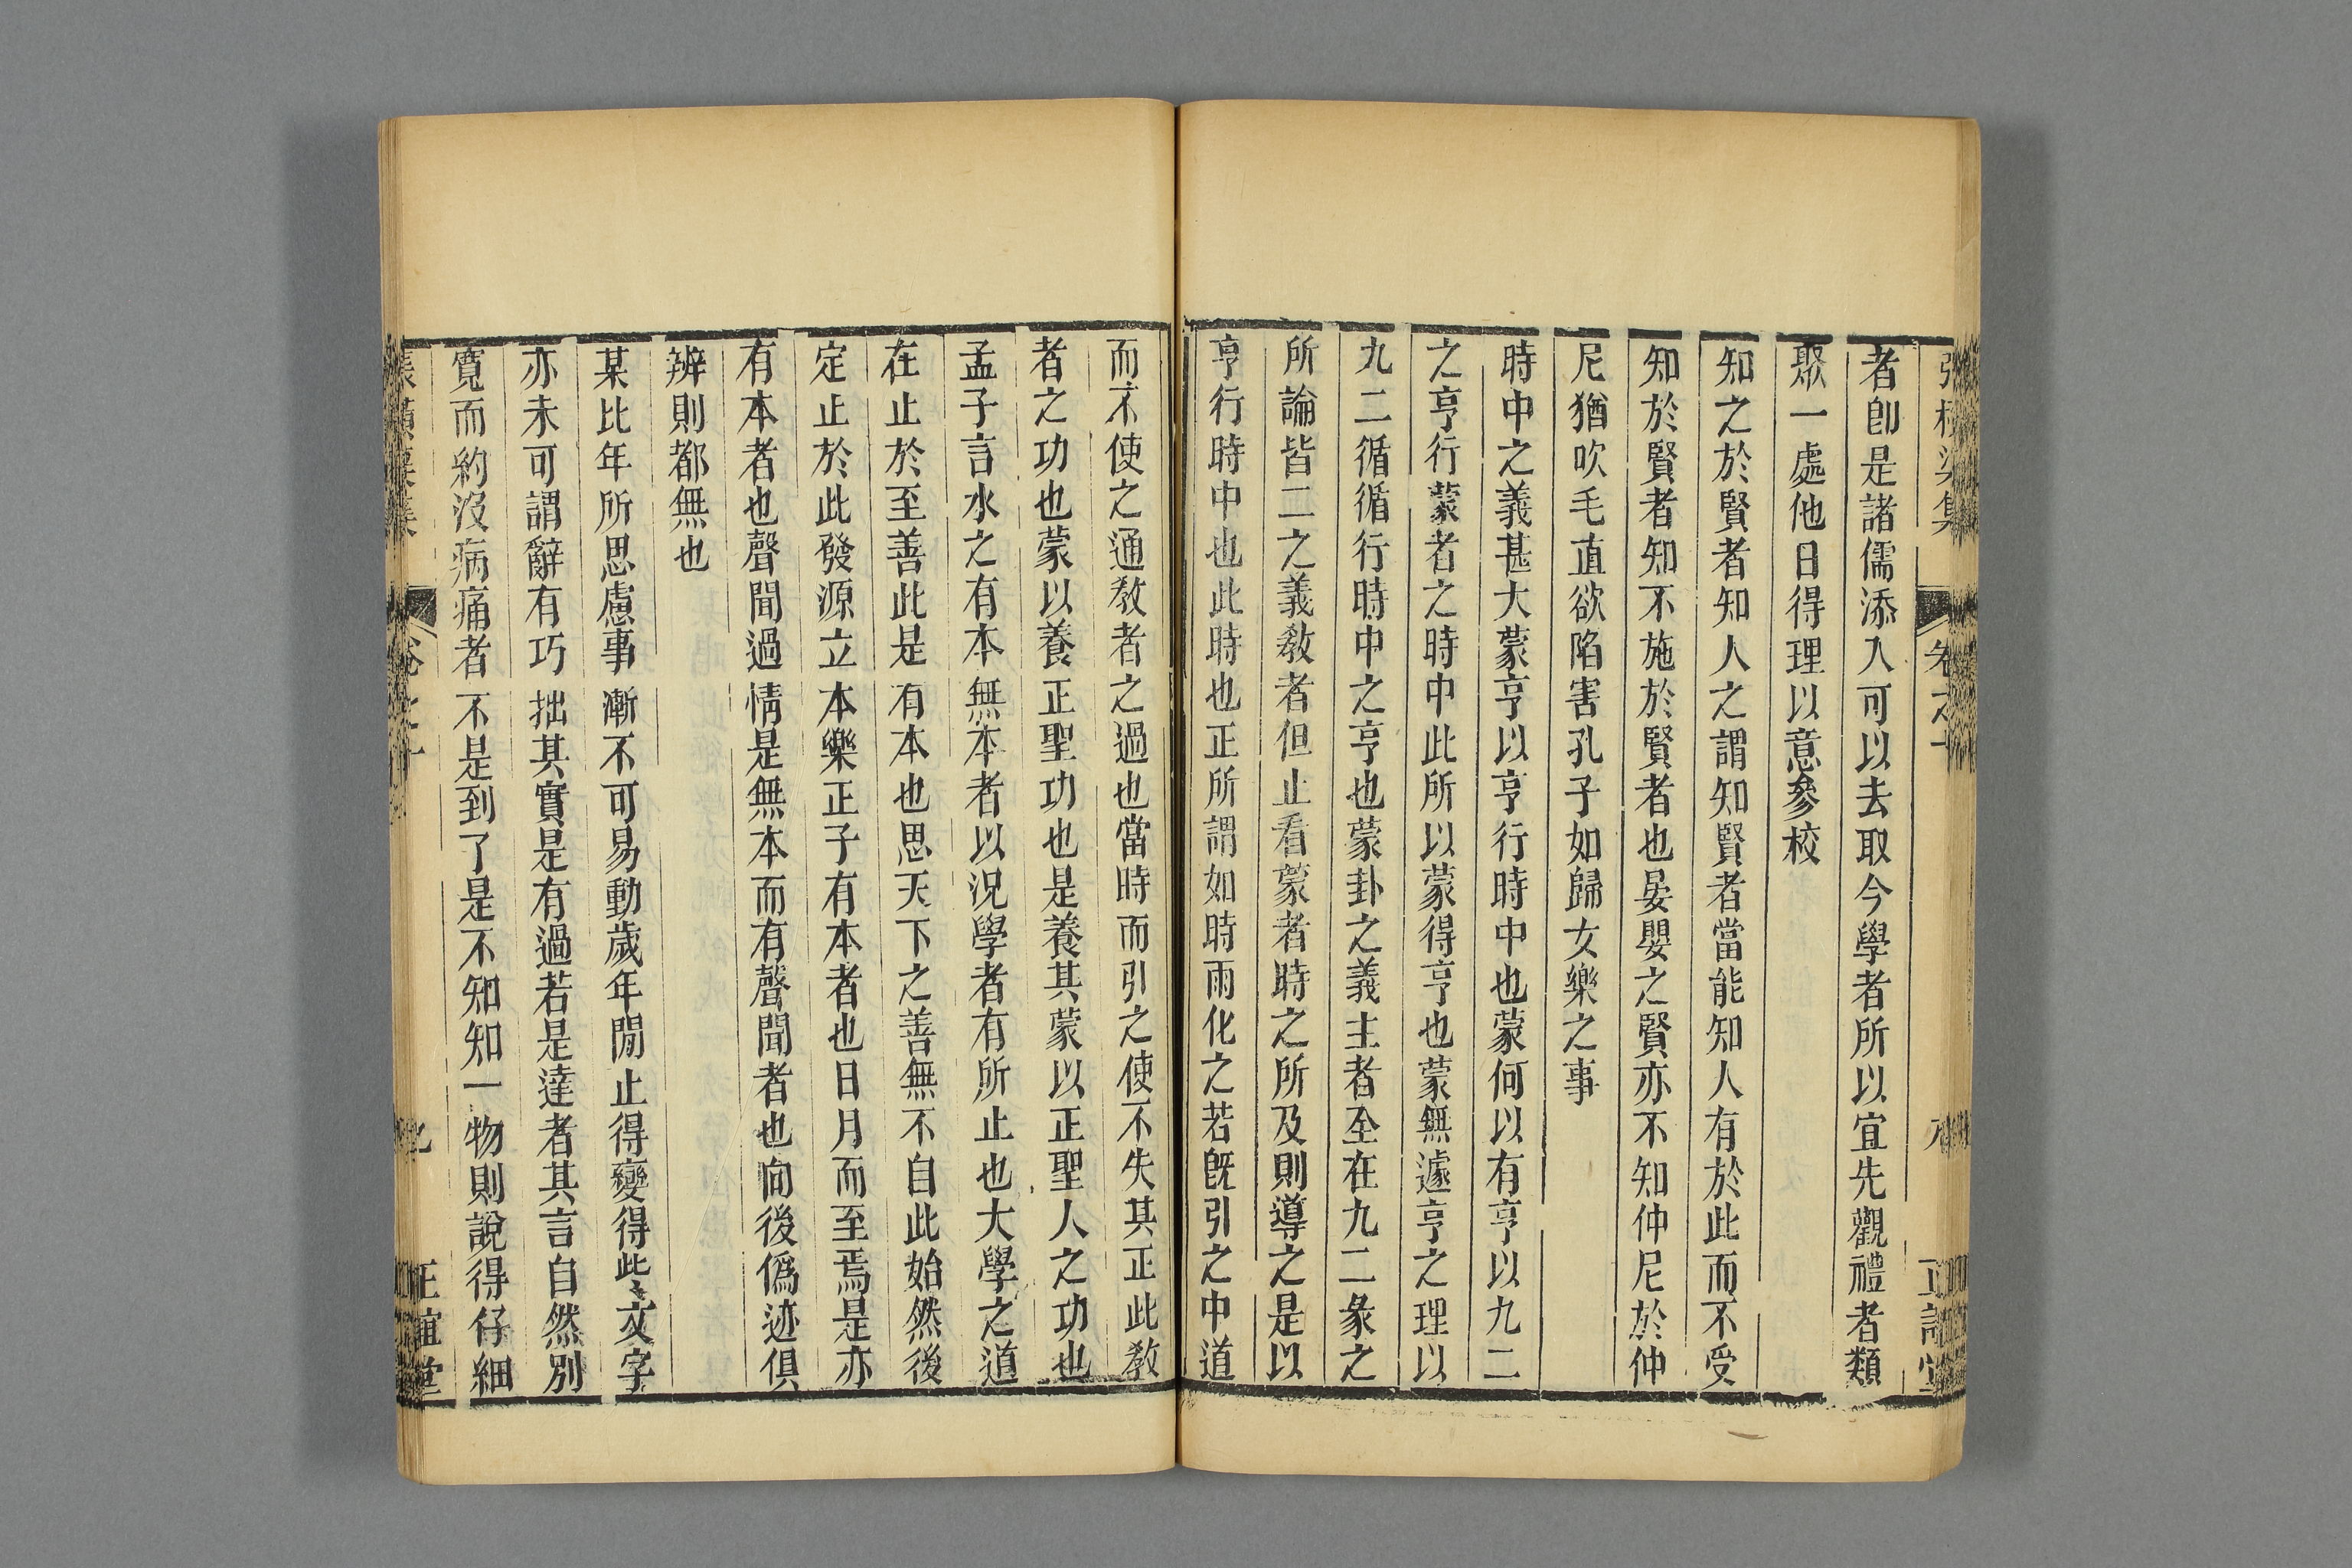 者卽是諸儒添入可以去取今學者所以宜先觀禮者類
聚一處他日得理以意參校
知之於賢者知人之謂知賢者當能知人有於此而不受
知於賢者知不施於賢者也晏嬰之賢亦不知仲尼於仲
尼猶吹毛直欲陷害孔子如歸女樂之事
時中之義甚大蒙亨以亨行時中也蒙何以有亨以九二
之亨行蒙者之時中此所以蒙得亨也蒙無遽亨之理以
九二循循行時中之亨也蒙卦之義主者至在九二彖之
所論皆二之義教者但止看蒙者時之所及則導之是以
亨行時中也此時也正所謂如時雨化之若旣引之中道
而不使之通教者之過也當時而引之使不失其正此教
者之功也蒙以養正聖功也是養其蒙以正聖人之功也
孟子言水之有本無本者以況學者有所止也大學之道
在止於至善此是有本也思天下之善無不自此始然後
定止於此發源立本樂正子有本者也日月而至焉是亦
有本者也聲聞過情是無本而有聲聞者也向後僞迹俱
辨則都無也
某比年所思慮事漸不可易動歲年閒止得變得此文字
亦未可謂辭有巧拙其實是有過若是達者其言自然別
寬而約沒病痛者不是到了是不知知一物則說得仔細
卷之十
正誼堂